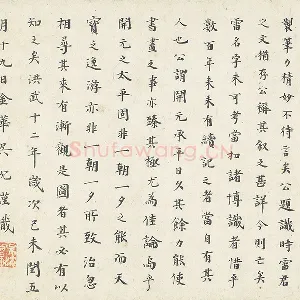 製筆力精妙不待言矣公題識時雷君
之文猶存公稱其叙之甚詳今則亡矣
雷名字未可考當知諸博識者惜乎
數百年来未有讀記之者當自有其
人也公謂開元承平日久其餘力能使
書畫之事亦臻其極尤為佳論焉乎
開元之太平固非一朝一夕之能而天
寶之逸游亦非一朝一夕所致治忽
相尋其来有漸觀是圖者其必有以
知之矣洪武十二年歲次己未閏五
月十九日金華吳沉謹識
Shufawang.CN